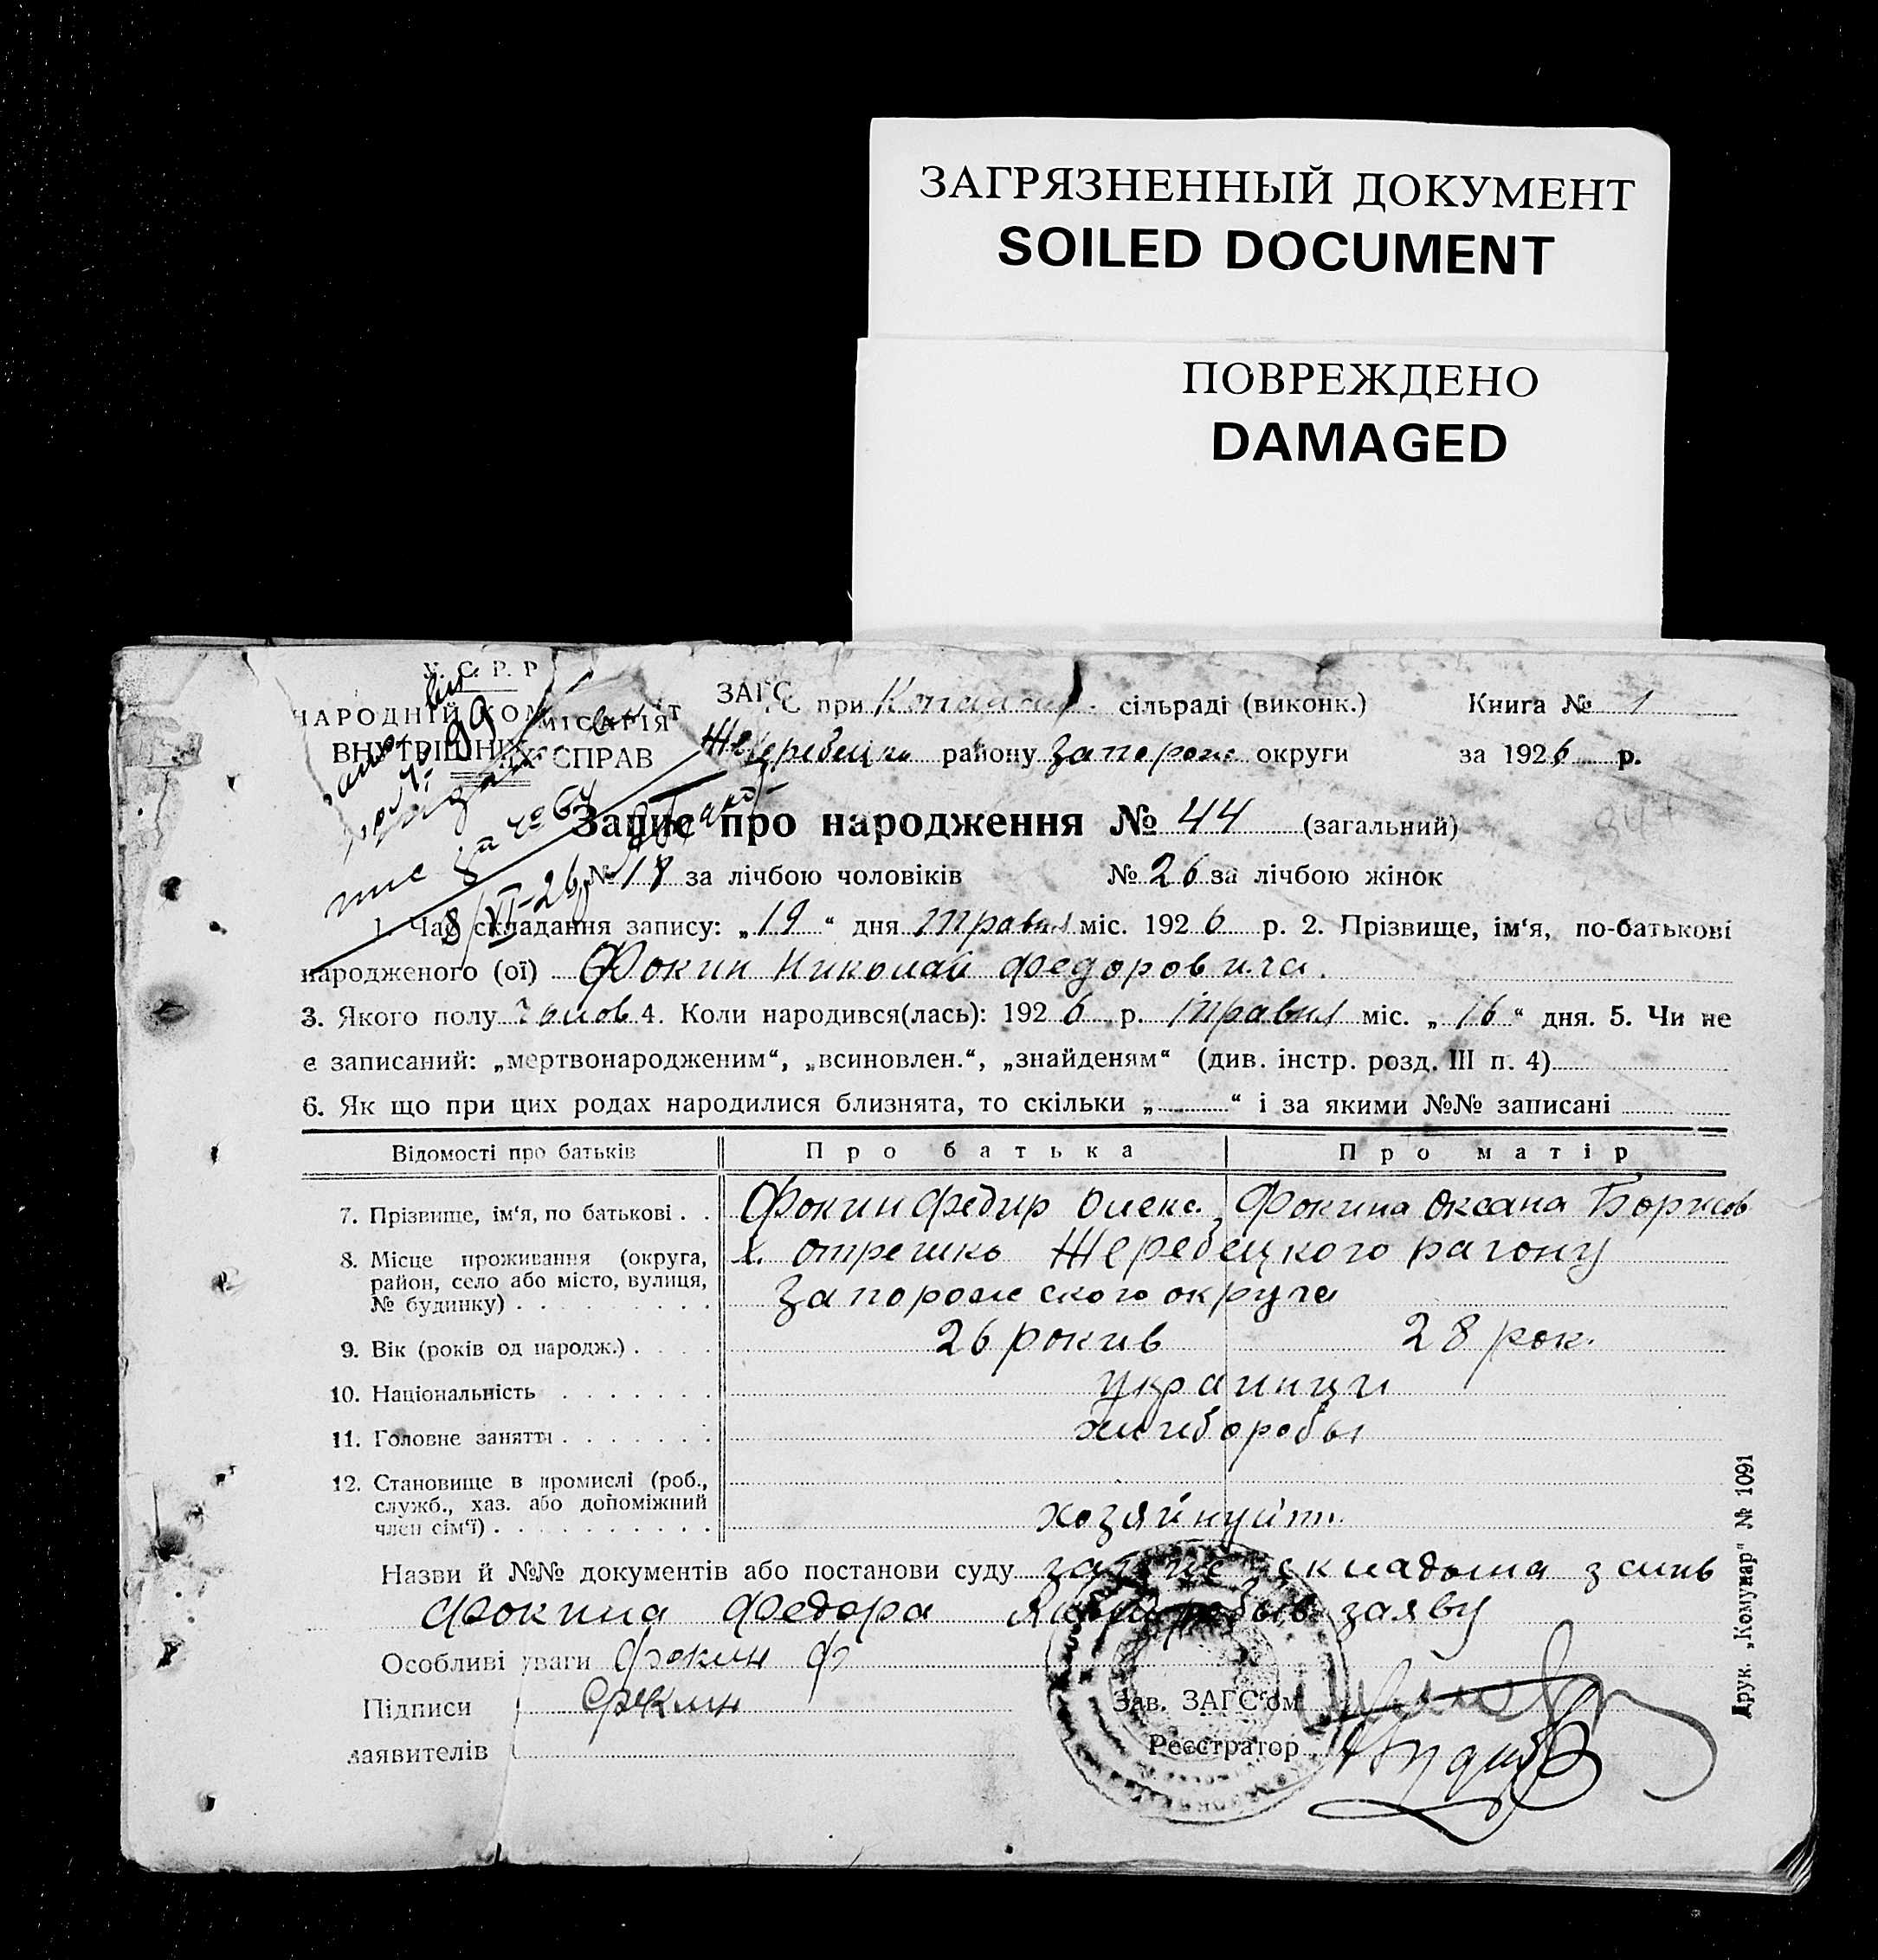 ЗАГРЯЗНЕННЫЙ ДОКУМЕНТ
SOILED DOCUMENT
ПОВРЕЖДЕНО
DAMAGED
У. С. Р. Р
НАРОДНІЙ КОМІСАРІЯТ
ВНУТРІШНІХ СПРАВ
ЗАГС при сільраді (виконк.) Книга № 1
Жеребецьк району Запорож округи за 1926 р.
Запис про народження № 44 (загальний)
№ 18 за лічбою чоловіків № 26 за лічбою жінок
8/VI-26
1. Час складання запису: „19“ дня травня міс. 1926 р. 2. Прізвище, ім‘я, по-батькові
народженого (ої) Фокин Николай Федорович
3. Якого полу чолов 4. Коли народився(лась): 1926 р. травня міс. „16“ дня. 5. Чи не
є записаний: „мертвонародженим“, „всиновлен.“, „знайденям“ (див. інстр. розд. III п. 4)
6. Як що при цих родах народилися близнята, то скільки „ “ і за якими №№ записані
Відомості про батьків Про батька Про матір
7. Прізвище, ім‘я, по батькові . . Фокин Федир Олекс. Фокина Оксана Борисов
8. Місце проживання (округа, район, село або місто, вулиця, № будинку) х. Жеребецкого району
Запорожского округа
9. Вік (років од народж.) 26 рокив 28 рок.
10. Національність украинци
11. Головне заняття хлиборобы
12. Становище в промислі (роб., служб., хаз. або допоміжний член сім‘ї) хозяйнуйт.
Назви й №№ документів або постанови суду складена з слив
Фокина Федора заяву
Особливі уваги Фокин Ф
Підписи Фокин
заявителів
Зав. ЗАГС‘ом
Реєстратор
Друк. „Комунар“ № 1091